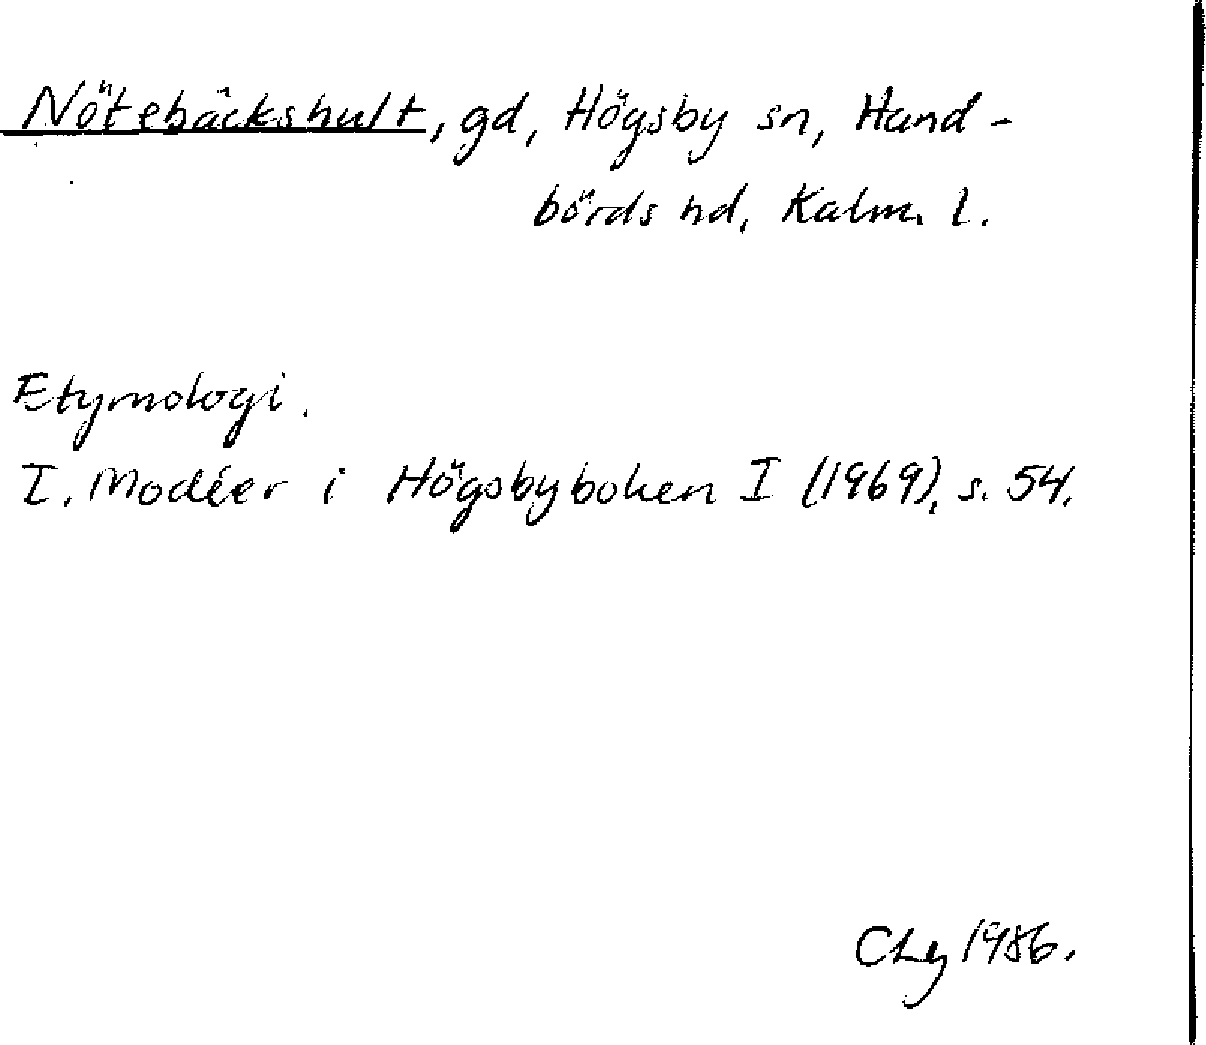 Nötebäckshult, gd, Högsby sn, Hand-
börds hd, Kalm. l.
Etymologi.
I. Modéer i Högsbyboken I (1969), s. 54.
CLg 1986.